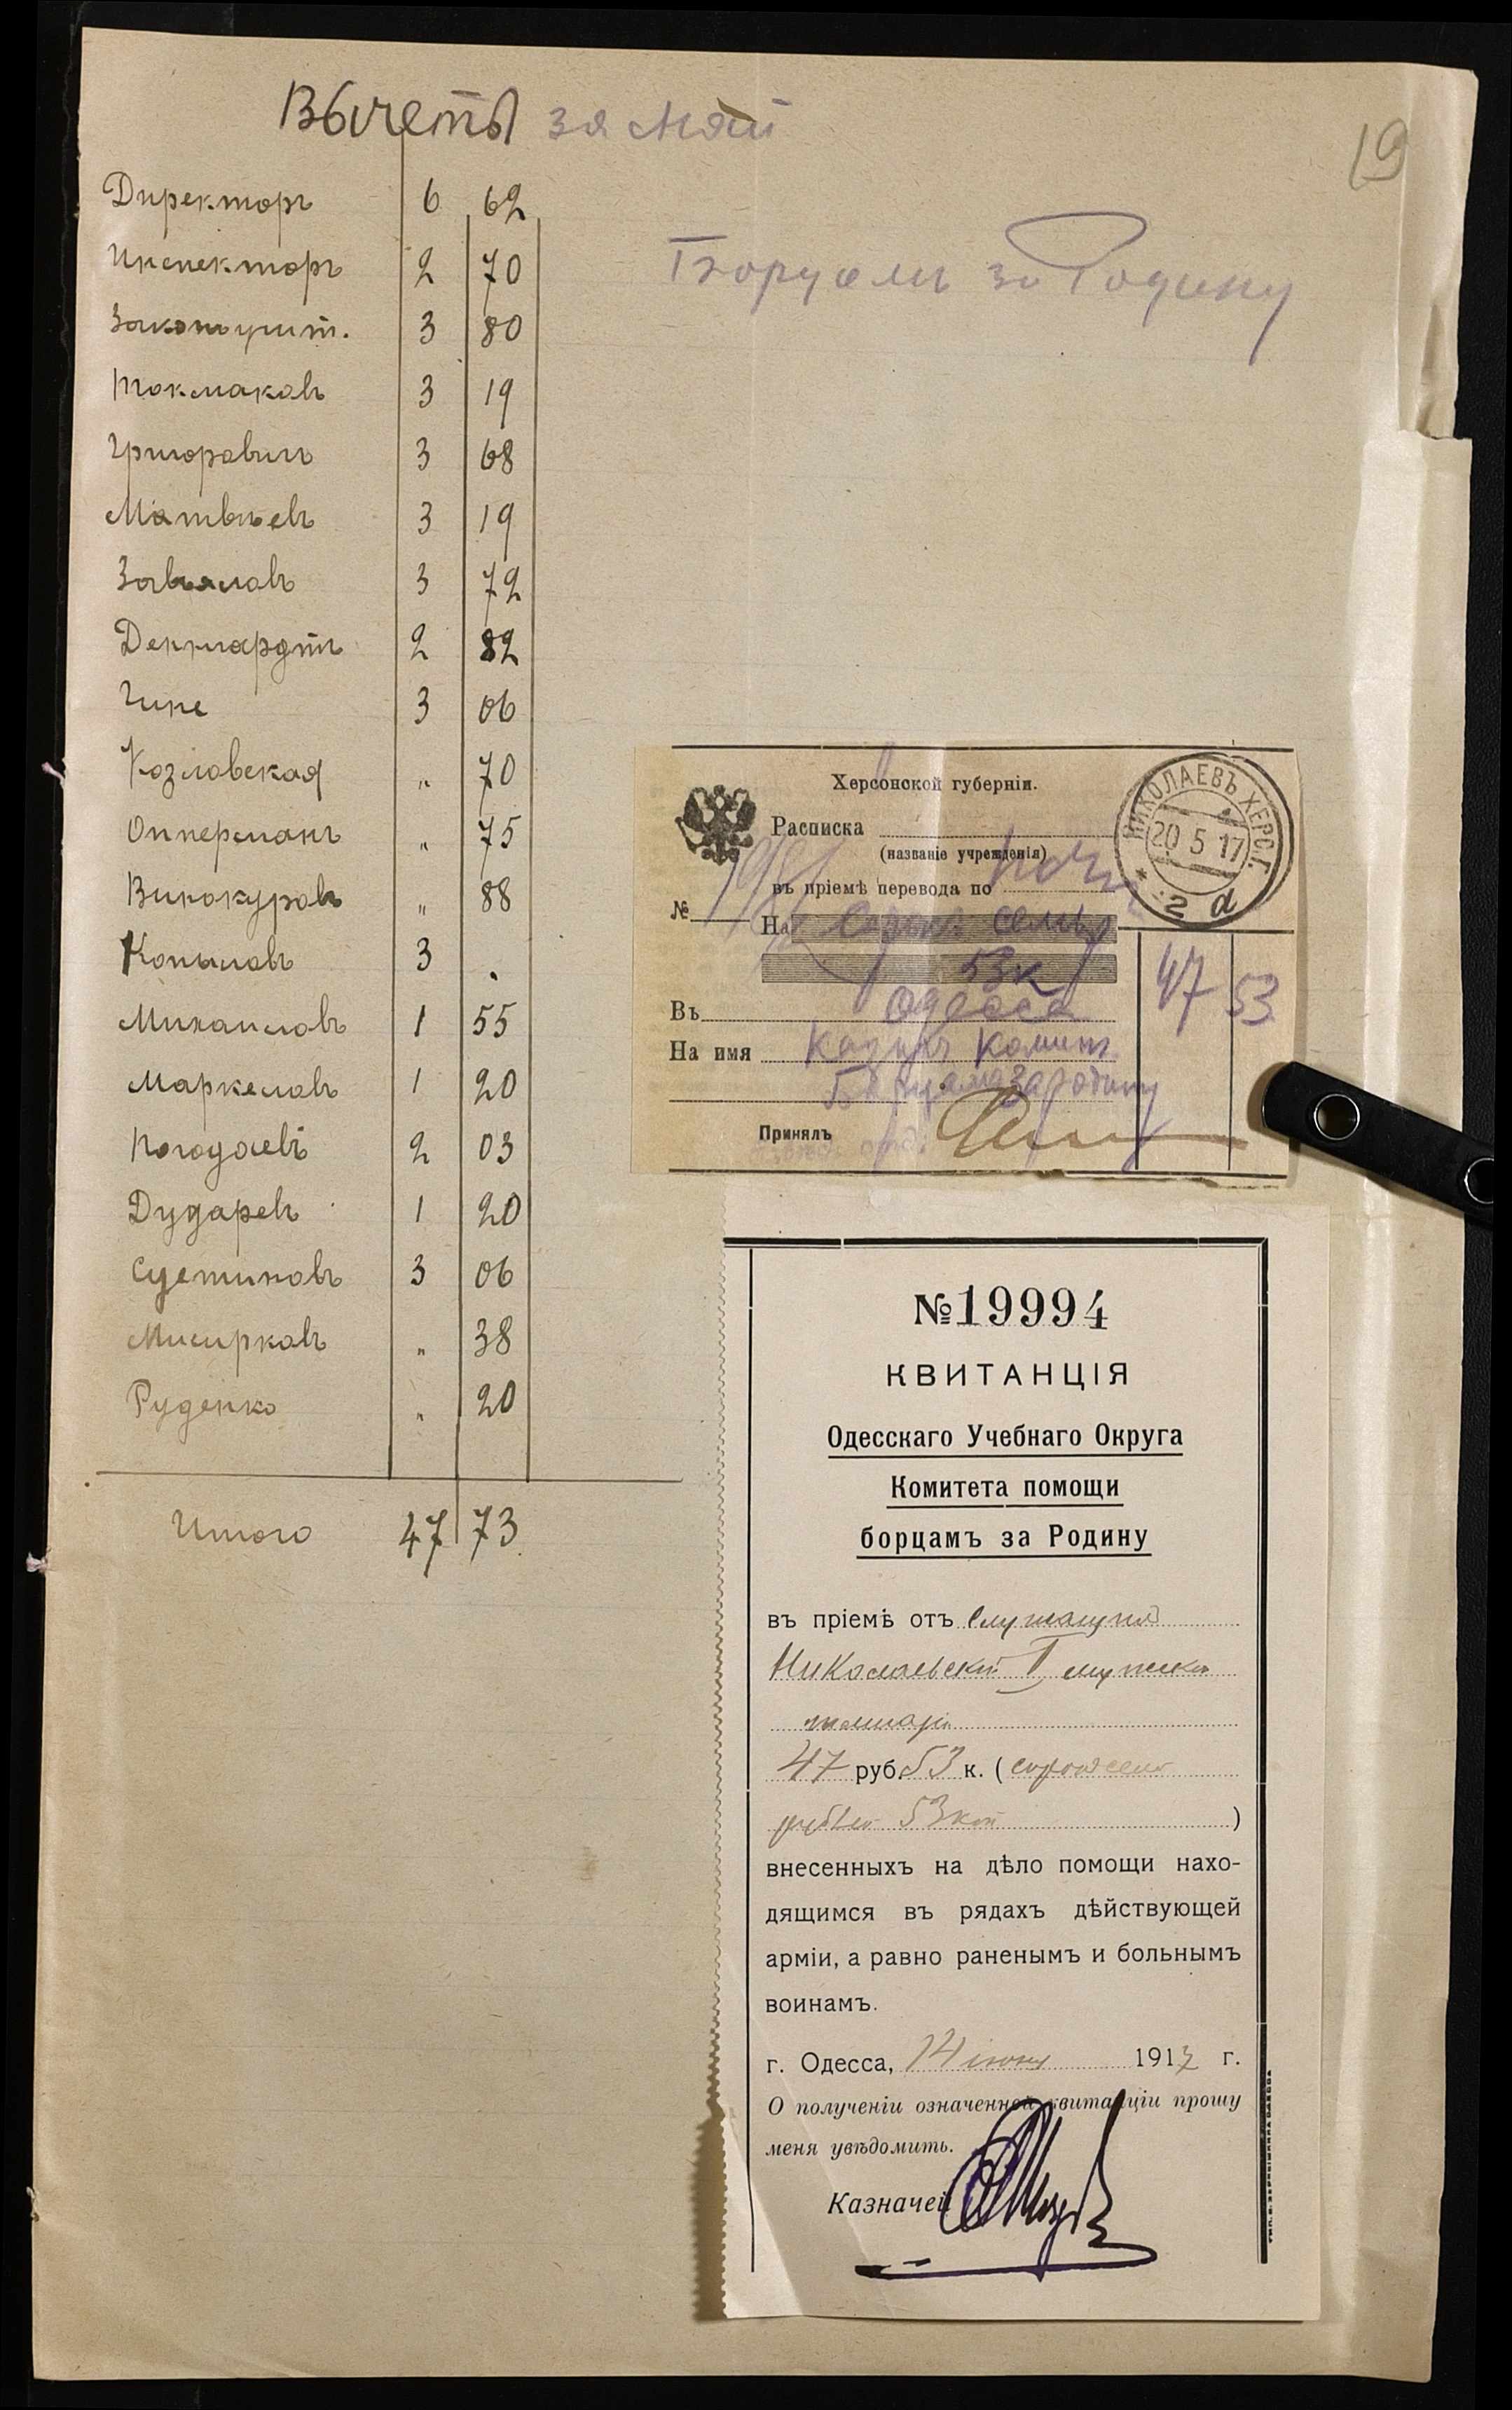 Вычеты за май
19
Директоръ 6 62
Инспекторъ 2 70
Законоучит. 3 80
Токмаковъ 3 19
Григоровичъ 3 68
Матвѣевъ 3 19
Завьяловъ 3 72
2 82
Гине 3 06
Козловская " 70
Опперманъ " 75
Винокуровъ " 88
Копыловъ 3 .
Михаиловъ 1 55
Маркеловъ 1 20
Погодаевъ 2 03
Дударевъ 1 20
Сѣтиковъ 3 06
Мисирковъ " 38
Руденко " 20
Итого 47 73
Борцамъ за Родину
Херсонской губерніи.
Расписка
(названіе учрежденія)
въ пріемѣ перевода по почт
№
На Сорокъ семь р
53 к
47 53
Въ Одесса
На имя Казнач Комит
Борцамъ за родину
Принялъ
НИКОЛАЕВЪ ХЕРС.Г.
20 5 17
* 2 d
№ 19994
КВИТАНЦІЯ
Одесскаго Учебнаго Округа
Комитета помощи
борцамъ за Родину
въ пріемѣ отъ Служащихъ
Николаевской I мужской
гимназіи
47 руб 53 к. (сорок семь
рублей 53 коп )
внесенныхъ на дѣло помощи нахо-
дящимся въ рядахъ дѣйствующей
арміи, а равно раненымъ и больнымъ
воинамъ.
г. Одесса, 14 іюня 1917 г.
О полученіи означенной квитанціи прошу
меня увѣдомить.
Казначей